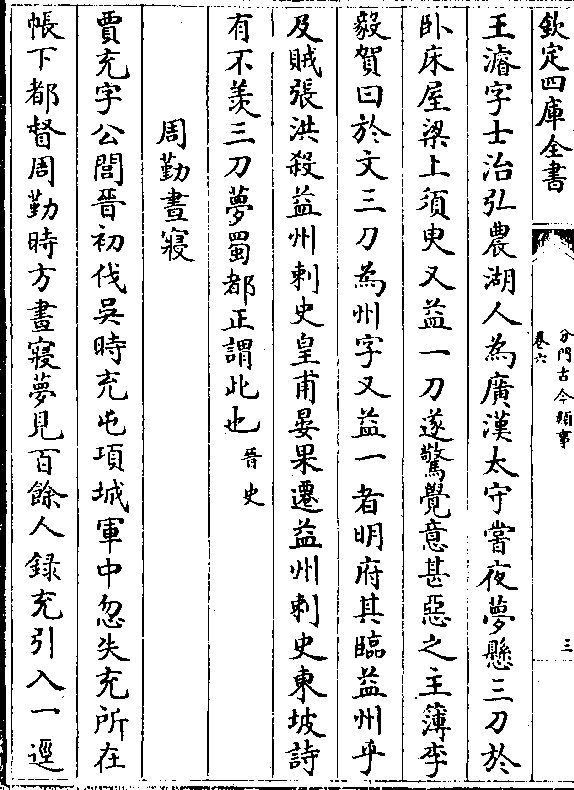 欽定四庫全書
分門古今類事
卷六
三
王濬字士治弘農湖人為廣漢太守嘗夜夢懸三刀於
卧床屋梁上須臾又益一刀遂驚覺意甚惡之主簿李
毅賀曰於文三刀為州字又益一者明府其臨益州乎
及賊張洪殺益州刺史皇甫晏果遷益州刺史東坡詩
有不羡三刀夢蜀都正謂此也晉史
周勤晝寢
賈充字公閭晉初伐吳時充屯項城軍中忽失充所在
帳下都督周勤時方晝寢夢見百餘人録充引入一逕